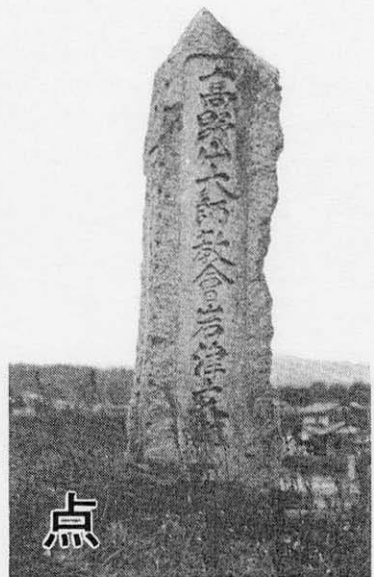 高野山大師教会岩津支部
点